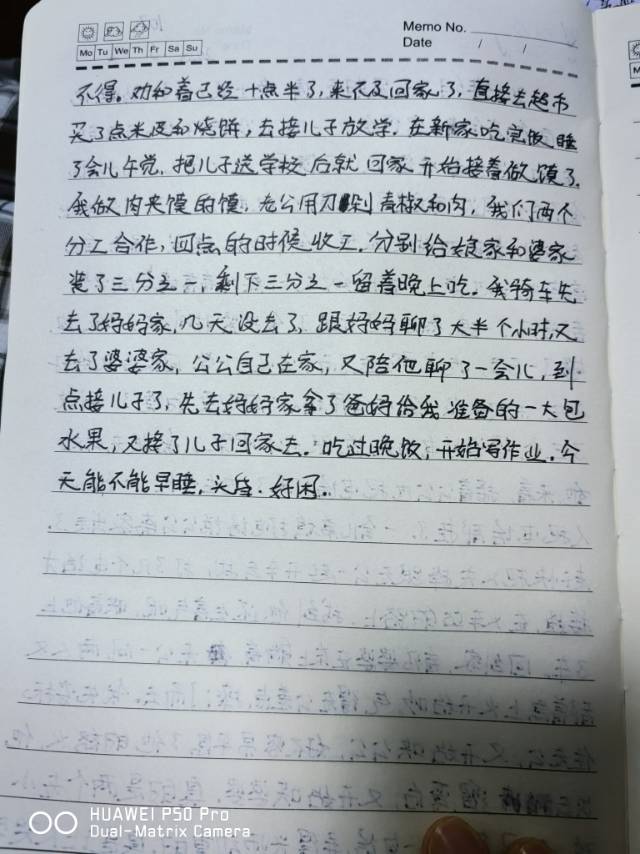 Memo No.
Date / /
Mo Tu We Th Fr Sa Su
不得。劝和着已经十点半了,来不及回家了,直接去超市
买了点米皮和烧饼,去接儿子放学。在新家吃完饭睡
了会儿午觉,把儿子送学校后就回家开始接着做馍了。
我做肉夹馍的馍,老公用刀剁青椒和肉,我们两个
分工合作,四点的时候收工,分别给娘家和婆家
装了三分之一,剩下三分之一留着晚上吃。我骑车先
去了妈妈家,几天没去了,跟妈妈聊了大半个小时,又
去了婆婆家,公公自己在家,又陪他聊了一会儿,到
点接儿子了,先去妈妈家拿了爸妈给我准备的一大包
水果,又接了儿子回家去。吃过晚饭,开始写作业。今
天能不能早睡,头昏.好困。
HUAWEI P50 Pro
Dual-Matrix Camera